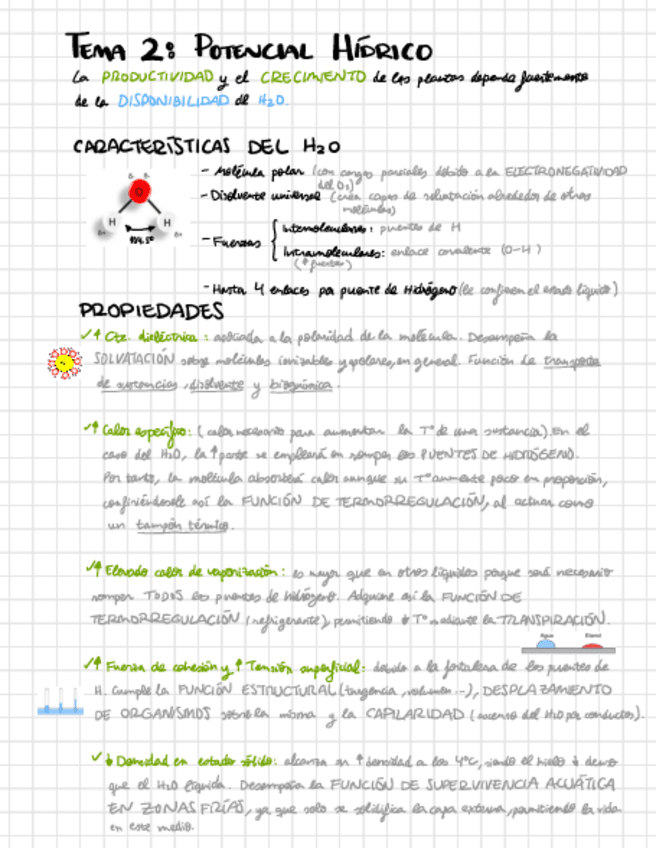 TEMA 2: POTENCIAL HÍDRICO
La PRODUCTIVIDAD y el CRECIMIENTO de las plantas depende fuertemente
de la DISPONIBILIDAD de H2O.
CARACTERÍSTICAS DEL H2O
- Molécula polar (con cargas parciales debido a la ELECTRONEGATIVIDAD
del O2)
- Disolvente universal (crea capas de solvatación alrededor de otras
moléculas)
- Fuerzas
Intermoleculares: puentes de H
Intramoleculares: enlace covalente (O-H)
(↑fuertes)
- Hasta 4 enlaces por puente de Hidrógeno (le confieren el estado líquido)
O
H H
δ- δ-
δ+ δ+
104,5°
PROPIEDADES
✓↑ Cte. dieléctrica: asociada a la polaridad de la molécula. Desempeña la
SOLVATACIÓN sobre moléculas ionizables y polares, en general. Función de transporte
de sustancias, disolvente y bioquímica.
✓↑ Calor específico: (calor necesario para aumentar la Tª de una sustancia). En el
caso del H2O, la ↑ parte se empleará en romper los PUENTES DE HIDRÓGENO.
Por tanto, la molécula absorberá calor aunque su Tª aumente poco en proporción,
confiriéndosele así la FUNCIÓN DE TERMORREGULACIÓN, al actuar como
un tampón térmico.
✓↑ Elevado calor de vaporización: es mayor que en otros líquidos porque será necesario
romper TODOS los puentes de hidrógeno. Adquiere así la FUNCIÓN DE
TERMORREGULACIÓN (refrigerante), permitiendo ↓ Tª mediante la TRANSPIRACIÓN.
Agua Etanol
✓↑ Fuerza de cohesión y ↑ Tensión superficial: debido a la fortaleza de los puentes de
H. Cumple la FUNCIÓN ESTRUCTURAL (turgencia, volumen...), DESPLAZAMIENTO
DE ORGANISMOS sobre la misma y la CAPILARIDAD (ascenso del H2O por conductos).
✓↓ Densidad en estado sólido: alcanza su ↑ densidad a los 4ºC, siendo el hielo ↓ denso
que el H2O líquida. Desempeña la FUNCIÓN DE SUPERVIVENCIA ACUÁTICA
EN ZONAS FRÍAS, ya que solo se solidifica la capa externa, permitiendo la vida
en este medio.